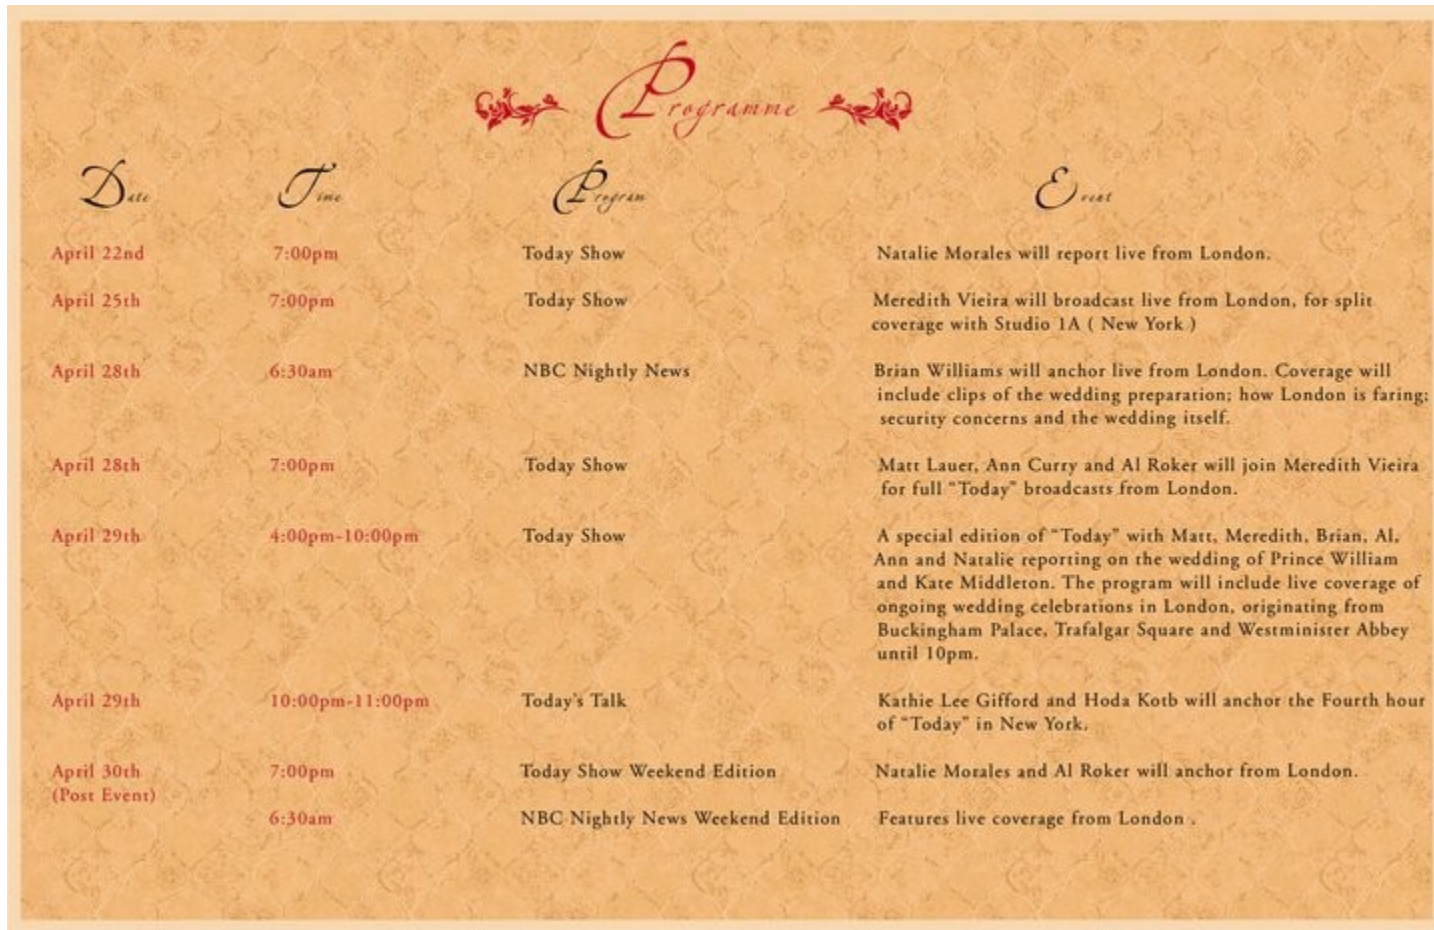 Programme
Date Time Program Event
April 22nd 7:00pm Today Show Natalie Morales will report live from London.
April 25th 7:00pm Today Show Meredith Vieira will broadcast live from London, for split
coverage with Studio 1A ( New York )
April 28th 6:30am NBC Nightly News Brian Williams will anchor live from London. Coverage will
include clips of the wedding preparation; how London is faring;
security concerns and the wedding itself.
April 28th 7:00pm Today Show Matt Lauer, Ann Curry and Al Roker will join Meredith Vieira
for full “Today” broadcasts from London.
April 29th 4:00pm-10:00pm Today Show A special edition of “Today” with Matt, Meredith, Brian, Al,
Ann and Natalie reporting on the wedding of Prince William
and Kate Middleton. The program will include live coverage of
ongoing wedding celebrations in London, originating from
Buckingham Palace, Trafalgar Square and Westminister Abbey
until 10pm.
April 29th 10:00pm-11:00pm Today’s Talk Kathie Lee Gifford and Hoda Kotb will anchor the Fourth hour
of “Today” in New York.
April 30th 7:00pm Today Show Weekend Edition Natalie Morales and Al Roker will anchor from London.
(Post Event)
6:30am NBC Nightly News Weekend Edition Features live coverage from London .